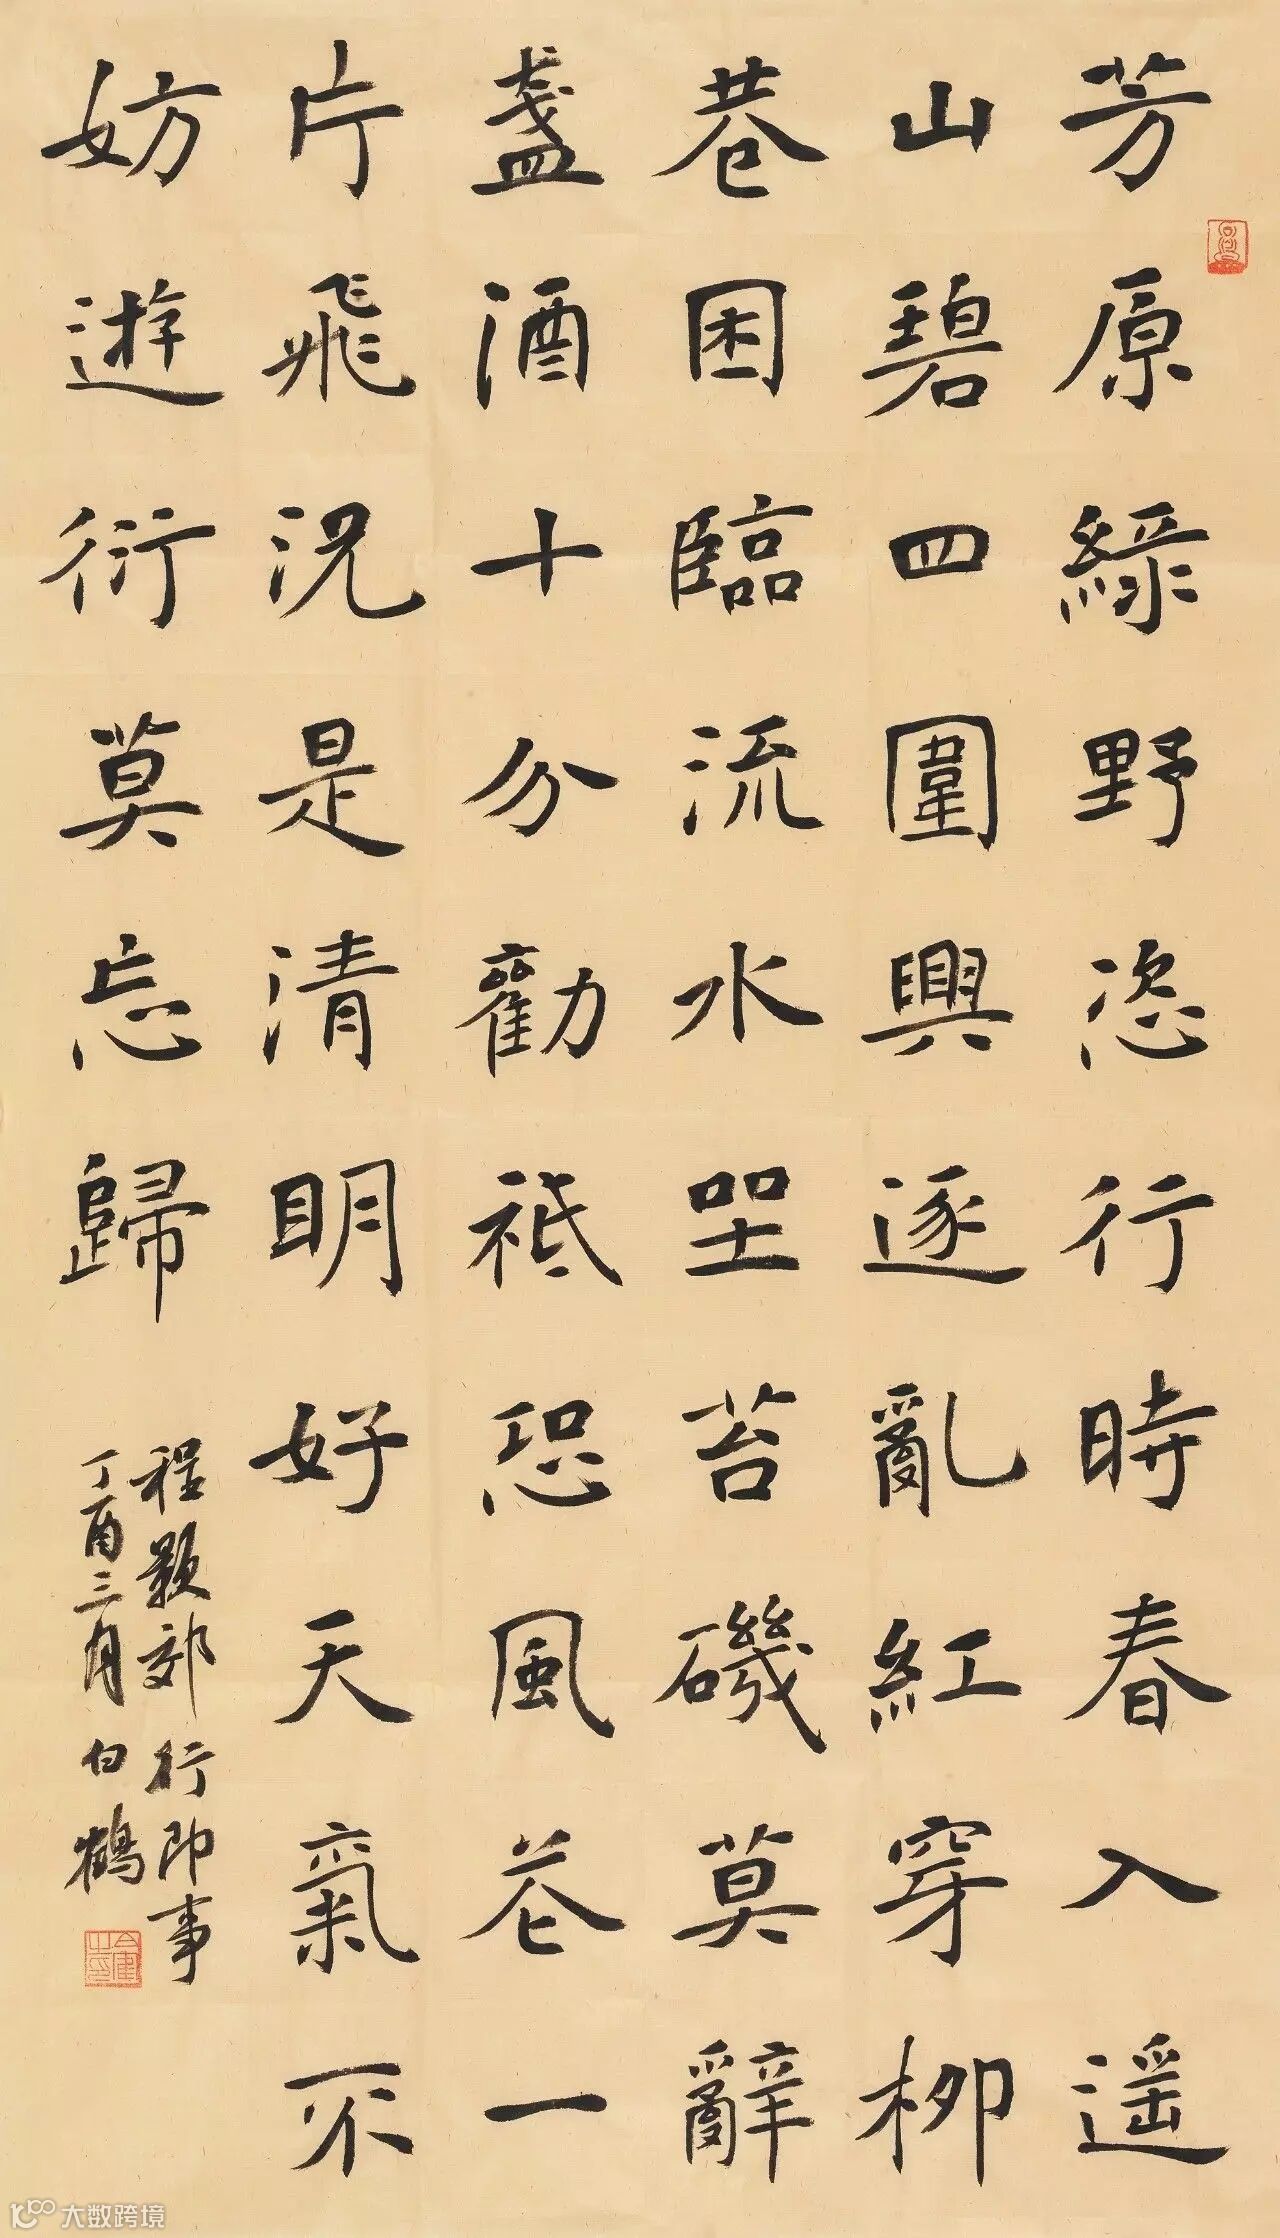 芳原綠野恣行時春入遥
山碧四圍興逐亂紅穿柳
巷困臨流水坐苔磯莫辭
盞酒十分勸祇恐風花一
片飛況是清明好天氣不
妨遊衍莫忘歸
程顥郊行即事
丁酉三月白鶴
大数跨境